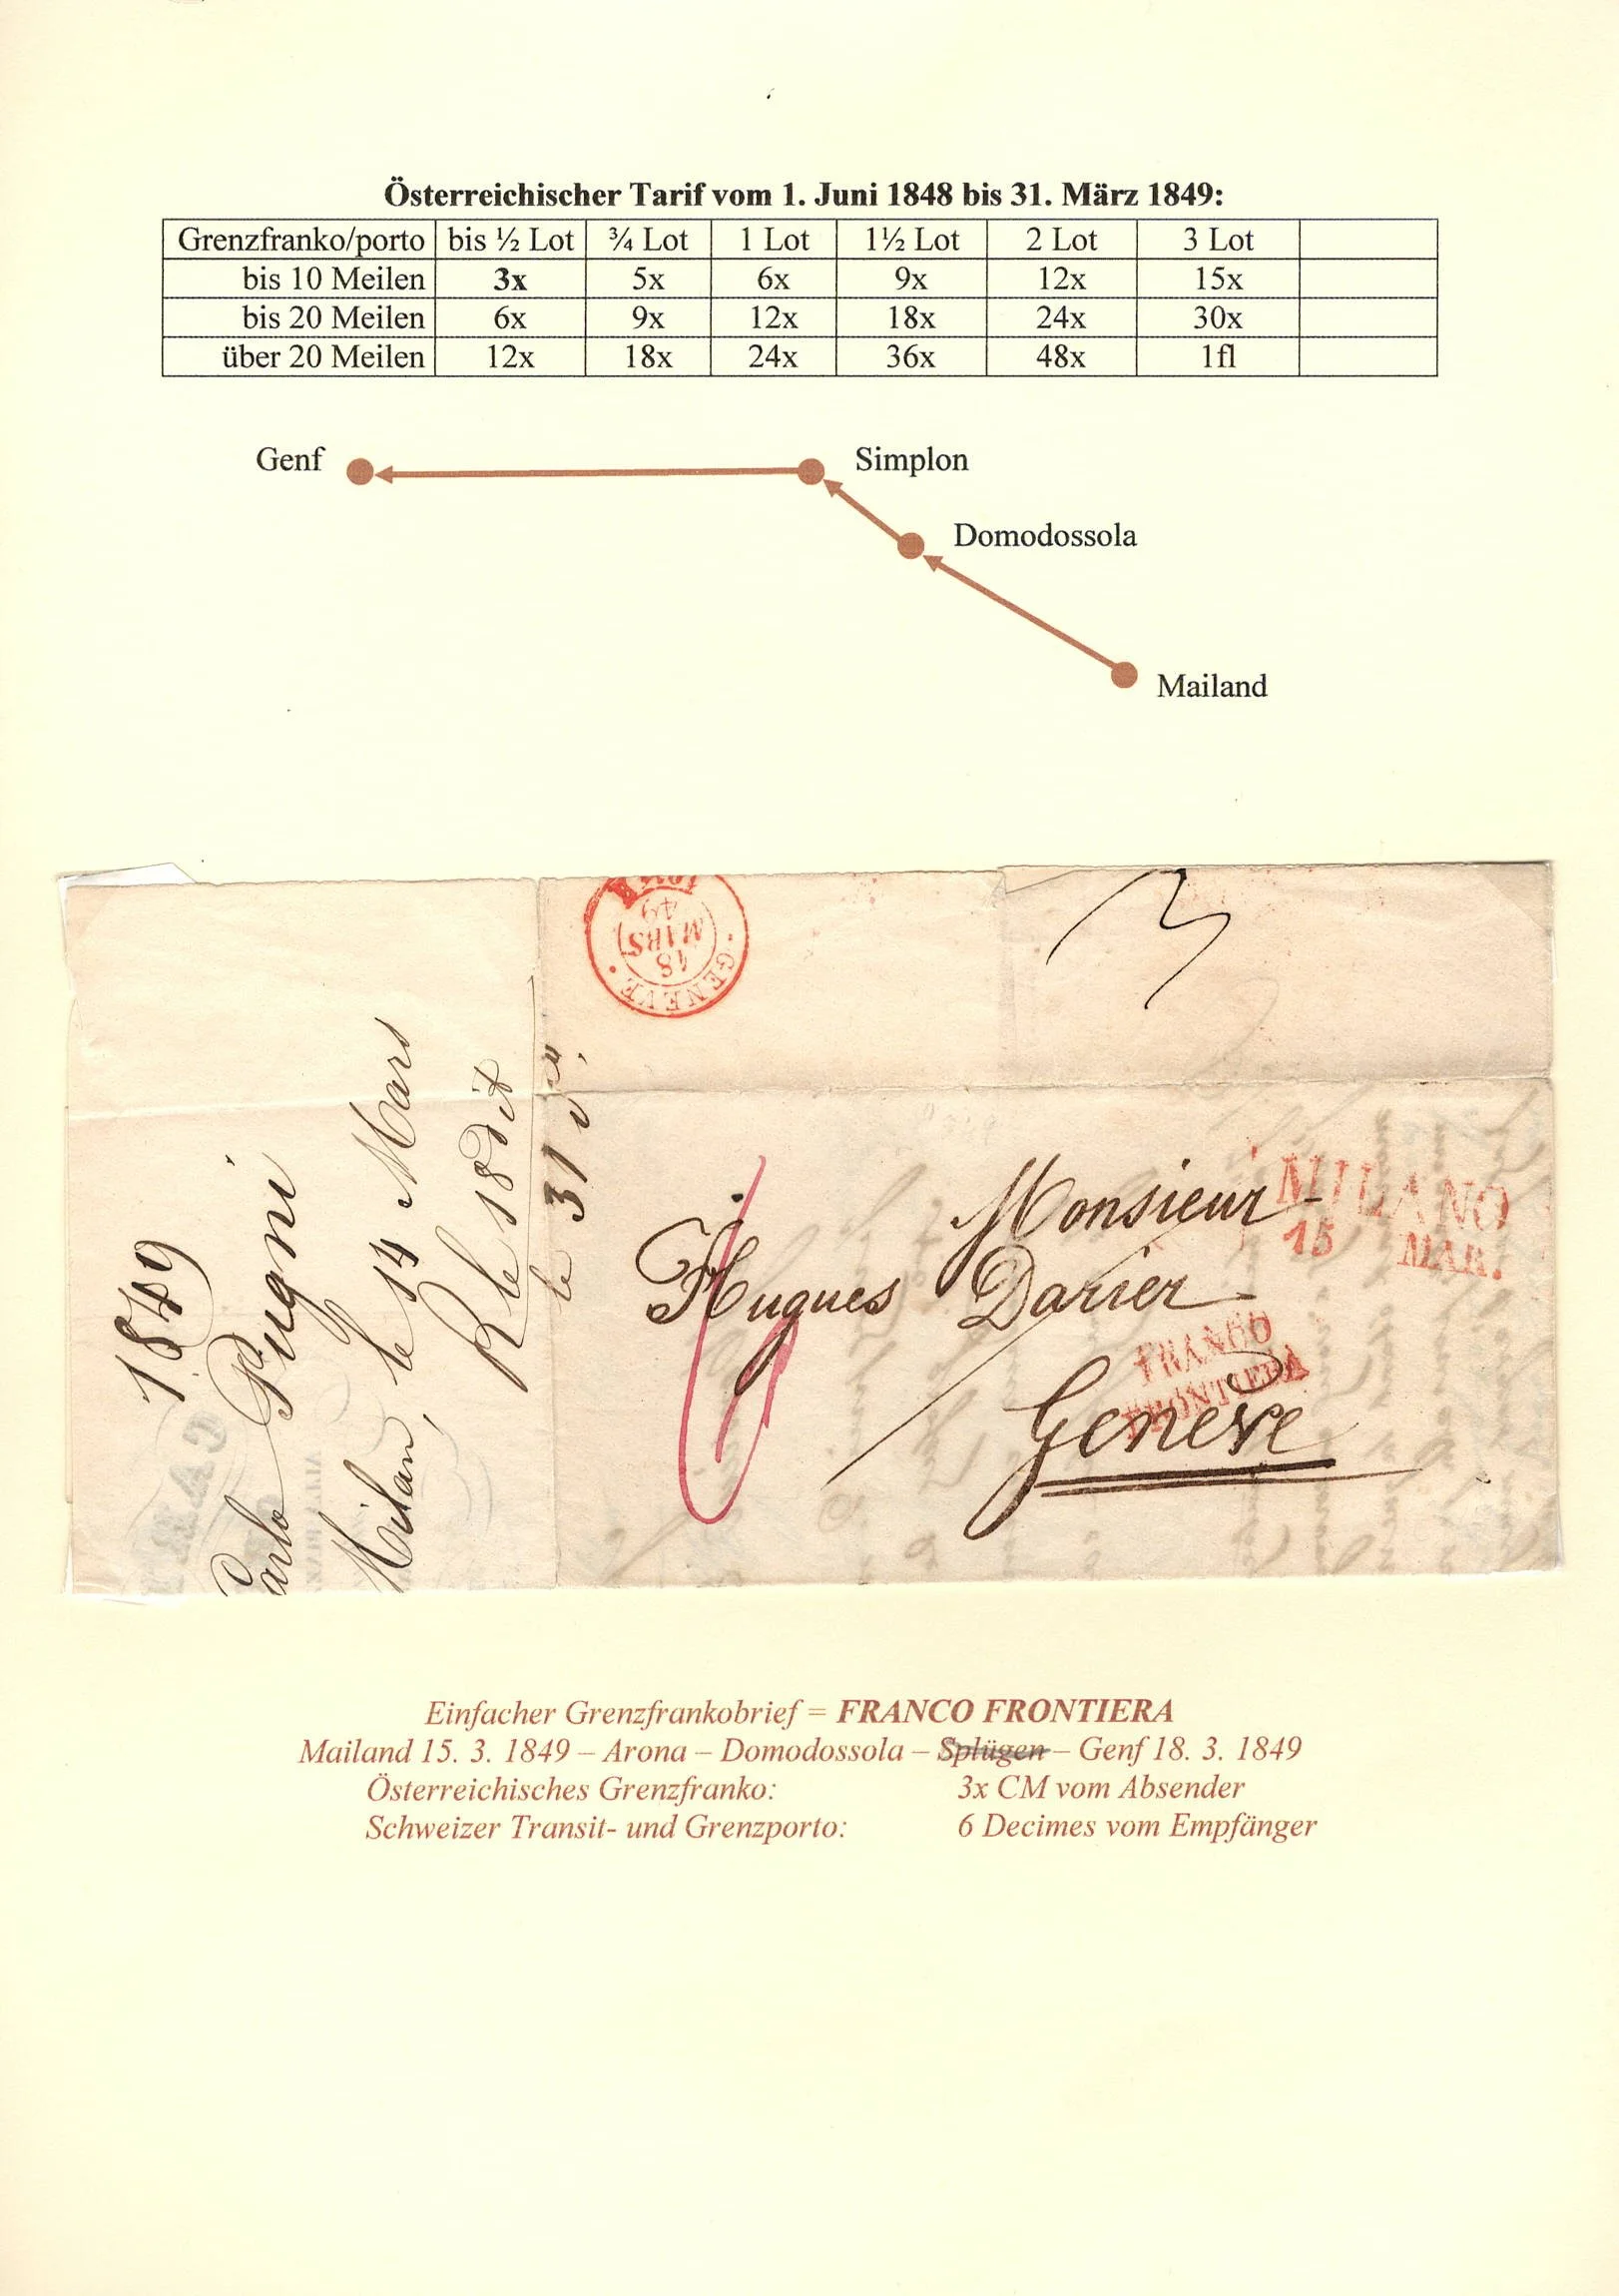 Österreichischer Tarif vom 1. Juni 1848 bis 31. März 1849:
Grenzfranko/porto bis ½ Lot ¾ Lot 1 Lot 1½ Lot 2 Lot 3 Lot
bis 10 Meilen 3x 5x 6x 9x 12x 15x
bis 20 Meilen 6x 9x 12x 18x 24x 30x
über 20 Meilen 12x 18x 24x 36x 48x 1fl
Genf
Simplon
Domodossola
Mailand
3
GENEVE
18
MARS
49
1849
Carlo Pugni
Milan, le 14 Mars
R le 18 dit
le 31
6
Monsieur
Hugues Darier
Genève
MILANO
15 MAR.
FRANCO
FRONTIERA
Einfacher Grenzfrankobrief = FRANCO FRONTIERA
Mailand 15. 3. 1849 – Arona – Domodossola – Splügen – Genf 18. 3. 1849
Österreichisches Grenzfranko: 3x CM vom Absender
Schweizer Transit- und Grenzporto: 6 Decimes vom Empfänger